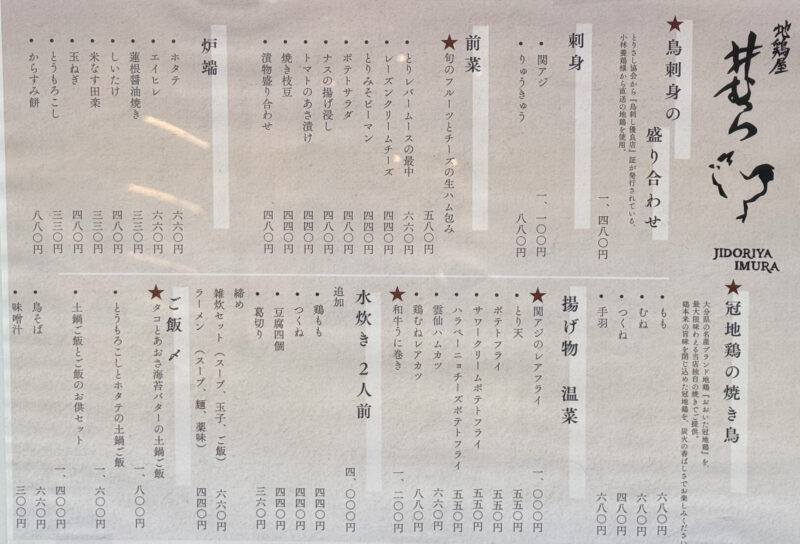 地鶏屋
井むら
JIDORIYA
IMURA
★鳥刺身の
盛り合わせ
とりさし協会から『鳥刺し優良店』証が発行されている、
小林養鶏様から直送の地鶏を使用。
一、四八〇円
刺身
・関アジ 一、一〇〇円
・りゅうきゅう 八八〇円
前菜
★旬のフルーツとチーズの生ハム包み 五八〇円
・とりレバームースの最中 六六〇円
・レーズンクリームチーズ 四四〇円
・とりみそピーマン 四八〇円
・ポテトサラダ 四八〇円
・ナスの揚げ浸し 四八〇円
・トマトのあさ漬け 四四〇円
・焼き枝豆 四四〇円
・漬物盛り合わせ 四八〇円
炉端
・ホタテ 六六〇円
・エイヒレ 六六〇円
・蓮根醤油焼き 三三〇円
・しいたけ 四八〇円
・米なす田楽 三三〇円
・玉ねぎ 四八〇円
・とうもろこし 三三〇円
・からすみ餅 八八〇円
★冠地鶏の焼き鳥
大分県の名産ブランド地鶏『おおいた冠地鶏』を、
最大限味わえる当店独自の焼きでご提供。
鶏本来の旨味を閉じ込めた冠地鶏を、炭火の香ばしさでお楽しみください
・もも 六八〇円
・むね 六八〇円
・つくね 四八〇円
・手羽 六八〇円
揚げ物 温菜
★関アジのレアフライ 一、〇〇〇円
・とり天 五五〇円
・ポテトフライ 五五〇円
・サワークリームポテトフライ 五五〇円
・ハラペーニョチーズポテトフライ 五五〇円
・雲仙ハムカツ 六六〇円
・鶏むねレアカツ 八八〇円
★和牛うに巻き 一、二〇〇円
水炊き 2人前 四、〇〇〇円
追加
・鶏もも 四四〇円
・つくね 四四〇円
・豆腐四個 四四〇円
・葛切り 三六〇円
締め
雑炊セット(スープ、玉子、ご飯) 六六〇円
ラーメン (スープ、麺、薬味) 四四〇円
ご飯〆
★タコとあおさ海苔バターの土鍋ご飯 一、八〇〇円
・とうもろこしとホタテの土鍋ご飯 一、六〇〇円
・土鍋ご飯とご飯のお供セット 一、四〇〇円
・鳥そば 六六〇円
・味噌汁 三〇〇円